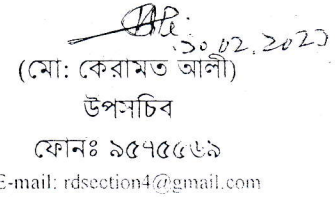 (মো: কেরামত আলী)
উপসচিব
ফোনঃ ৯৫৭৫৫৬৯
E-mail: rdsection4@gmail.com